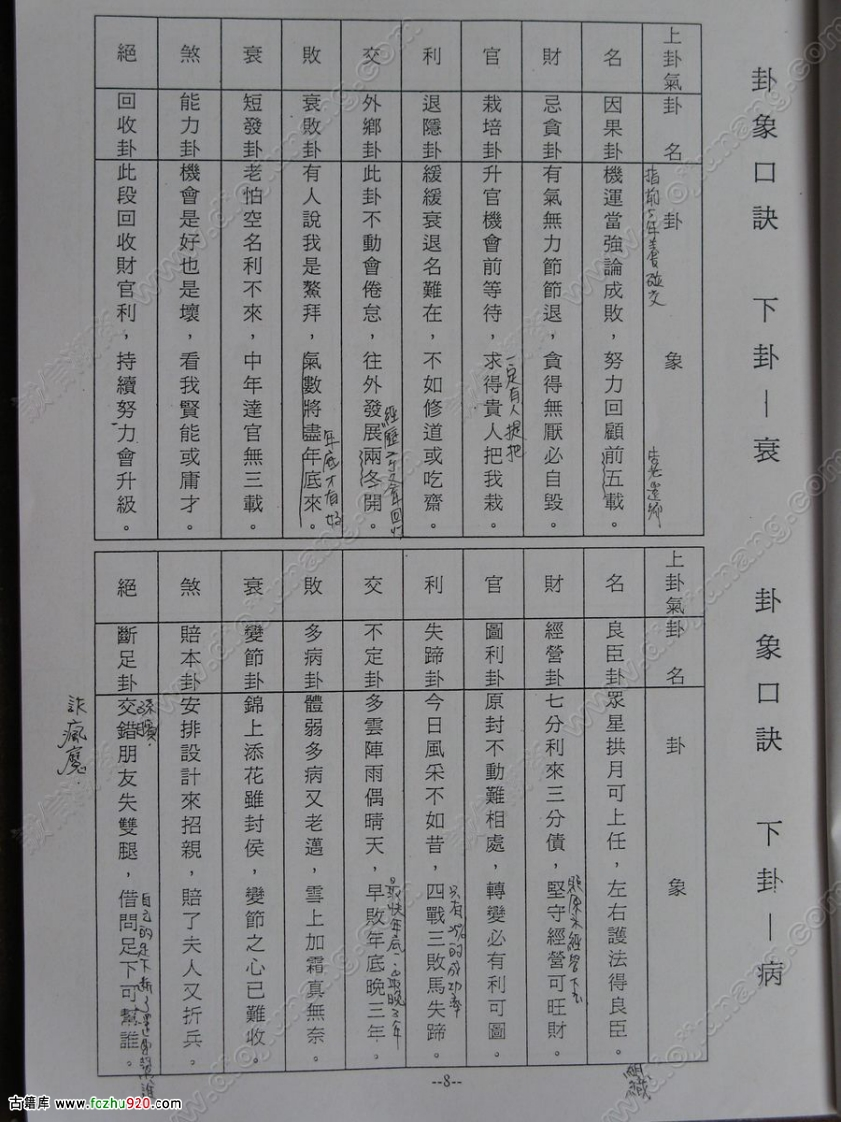 卦象口訣　下卦－衰
上卦氣　卦名　卦象
名　因果卦　機運當強論成敗，努力回顧前五載。
財　忌貪卦　有氣無力節節退，貪得無厭必自毀。
官　栽培卦　升官機會前等待，求得貴人把我栽。
一定有人提把
利　退隱卦　緩緩衰退名難在，不如修道或吃齋。
交　外鄉卦　此卦不動會倦怠，往外發展兩冬開。
敗　衰敗卦　有人說我是鰲拜，氣數將盡年底來。
年底才有好
衰　短發卦　老怕空名利不來，中年達官無三載。
煞　能力卦　機會是好也是壞，看我賢能或庸才。
絕　回收卦　此段回收財官利，持續努力會升級。
卦象口訣　下卦－病
上卦氣　卦名　卦象
名　良臣卦　眾星拱月可上任，左右護法得良臣。
財　經營卦　七分利來三分債，堅守經營可旺財。
照原來經營下去
官　圖利卦　原封不動難相處，轉變必有利可圖。
利　失蹄卦　今日風采不如昔，四戰三敗馬失蹄。
交　不定卦　多雲陣雨偶晴天，早敗年底晚三年。
最快年底，最晚三年
敗　多病卦　體弱多病又老邁，雪上加霜真無奈。
衰　變節卦　錦上添花雖封侯，變節之心已難收。
煞　賠本卦　安排設計來招親，賠了夫人又折兵。
絕　斷足卦　交錯朋友失雙腿，借問足下可幫誰。
--8--
古籍库 www.fozhu920.com
www.daojiufang.com